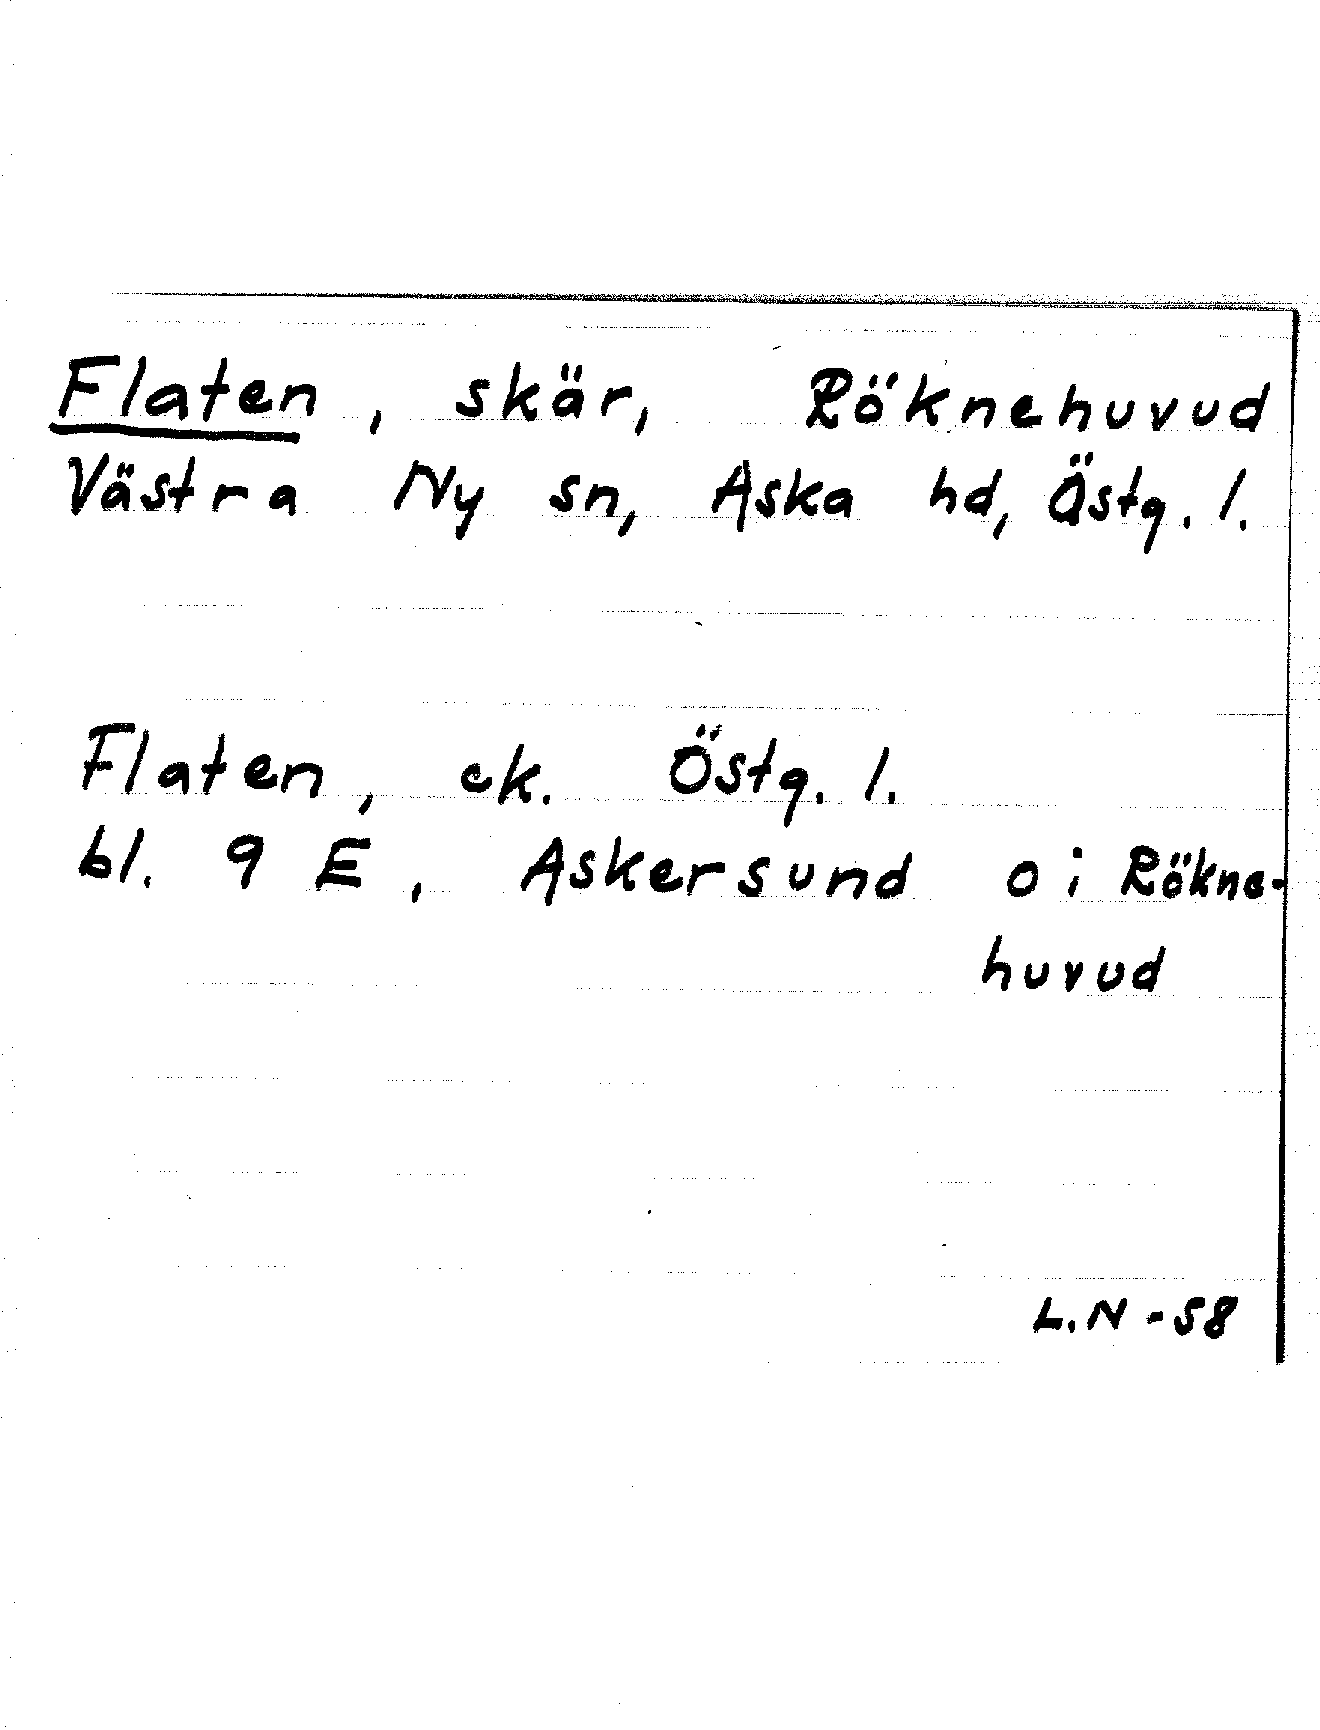 Flaten, skär, Röknehuvud
Västra Ny sn, Aska hd, Östg. l.
Flaten, ek. Östg. l.
bl. 9 E, Askersund o i Rökne-
huvud
L.N - 58